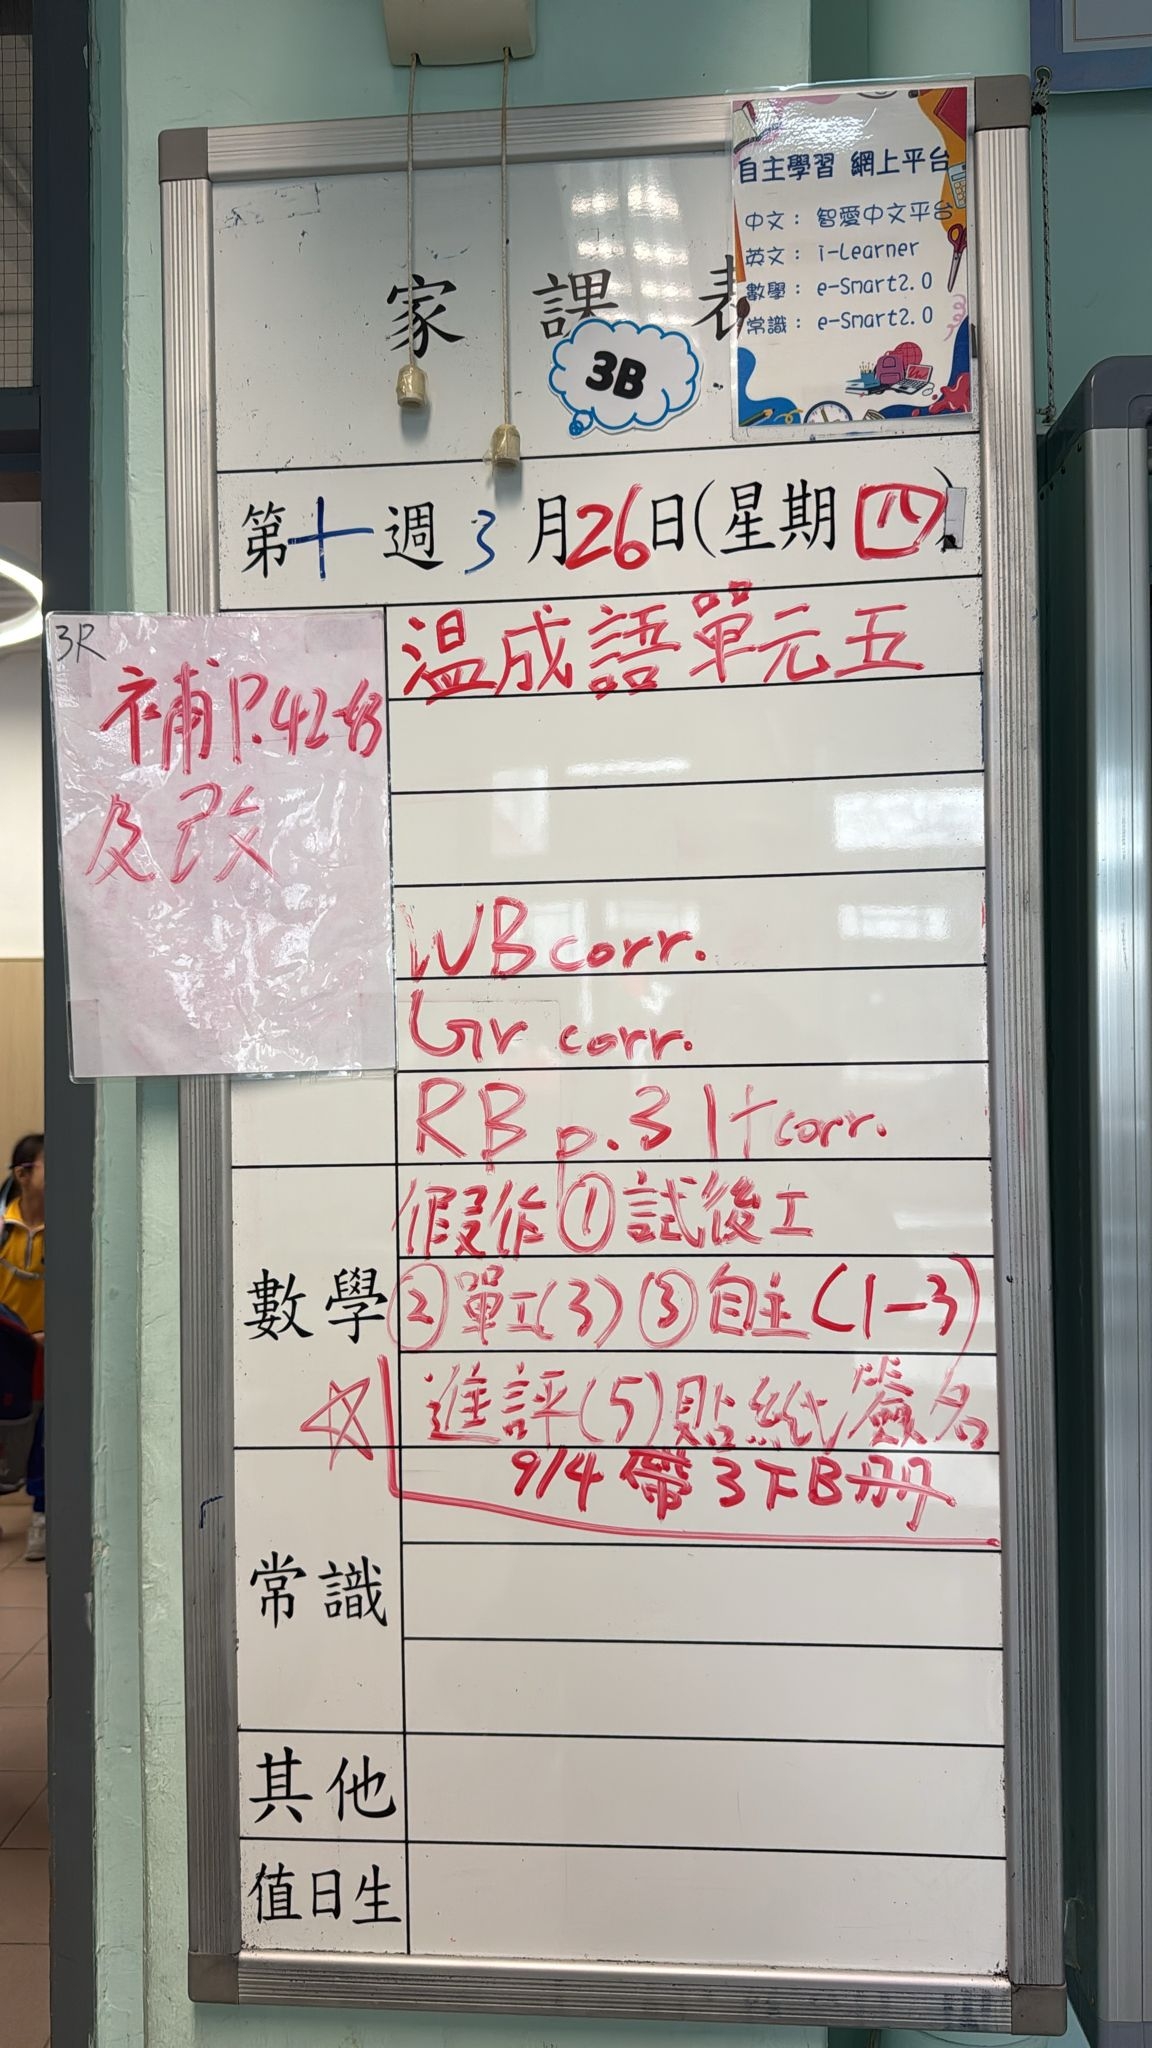 自主學習 網上平台
中文： 智愛中文平台
英文： i-Learner
數學： e-Smart2.0
常識： e-Smart2.0
家課表
3B
第十週 3月26日(星期四)
3R
補P.42-43
及改
溫成語單元五
WB corr.
Gr corr.
RB p.31+corr.
數學
假作①試後工
②單工(3)③自主(1-3)
進評(5)貼紙簽名
9/4 帶3下B冊
常識
其他
值日生